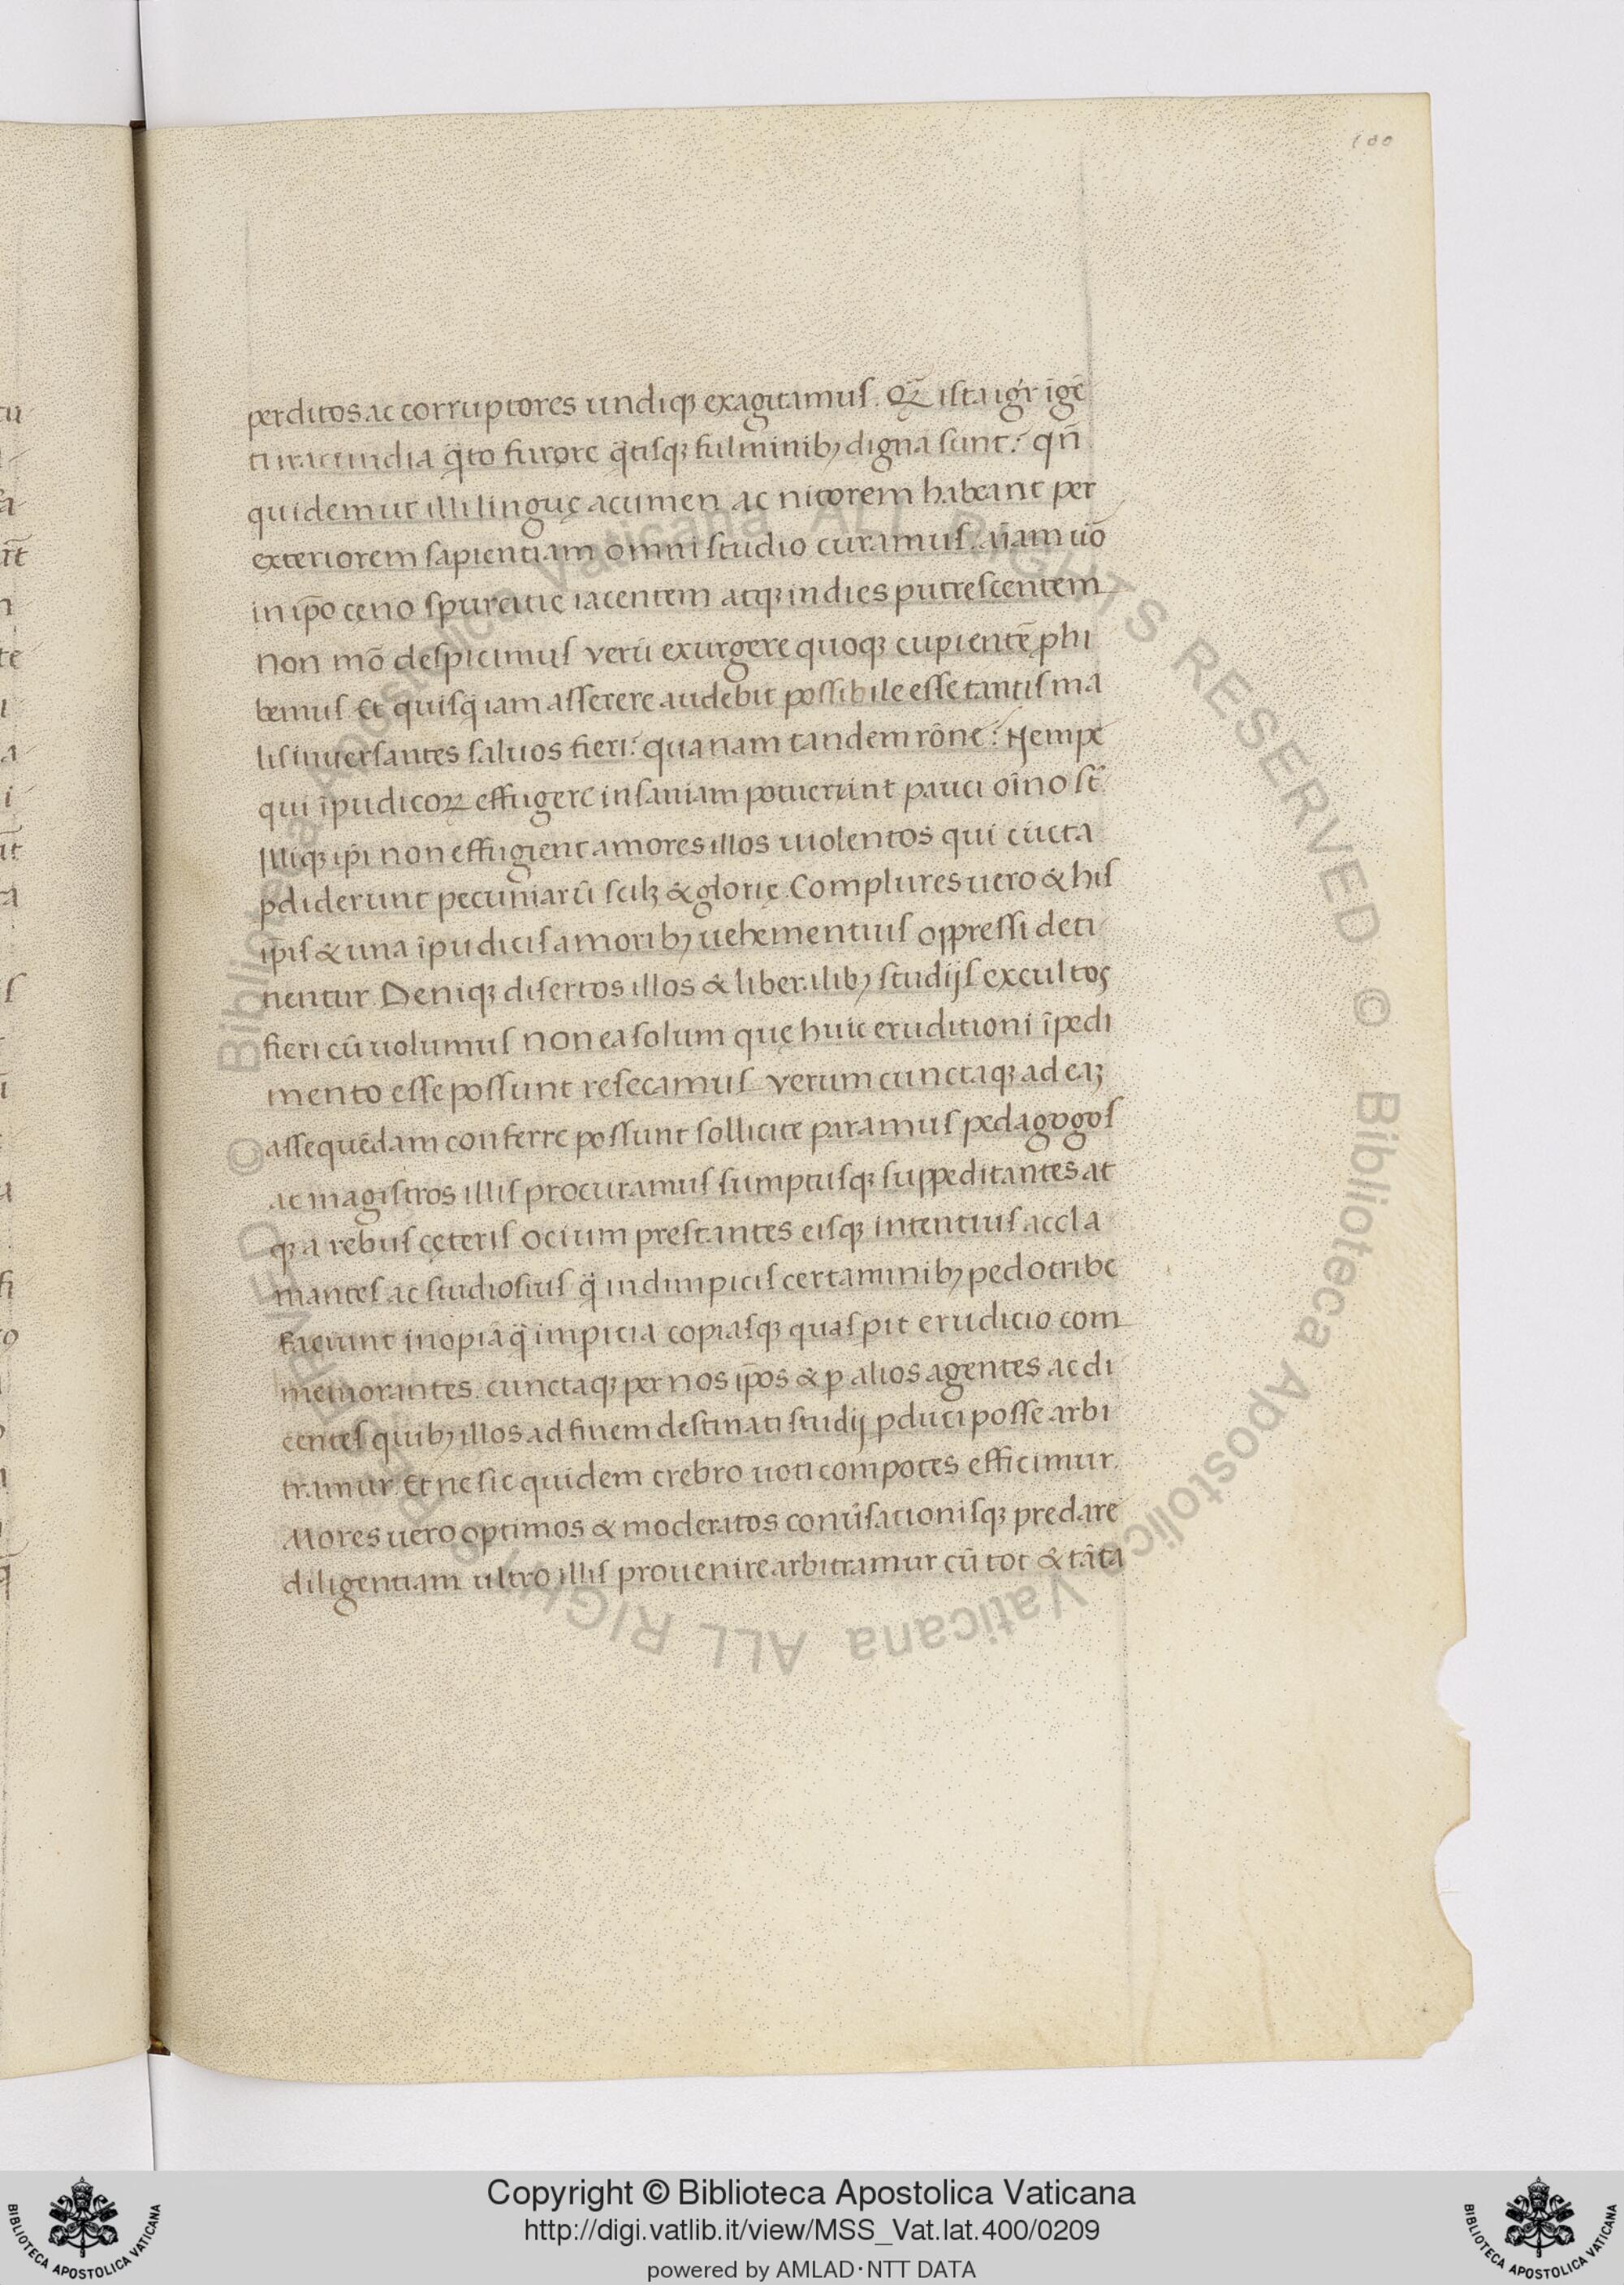 100
perditos ac corruptores undiqꝫ exagitamus. Qꝝ ista igr̃ ĩgẽ
ti iracundia q̃to furore q̃tisqꝫ fulminibꝫ digna sunt? qñ
quidem ut illi linguę acumen ac nitorem habeant per
exteriorem sapientiam omni studio curamus. aĩam uõ
in ip̃o ceno spurcitie iacentem atqꝫ indies putrescentem
non mõ despicimus verũ exurgere quoqꝫ cupientẽ phi
bemus Et quisq̃ iam asserere audebit possibile esse tantis ma
lis inversantes saluos fieri? quanam tandem rõne? Nempe
qui ĩpudicoꝝ effugere insaniam potuerunt pauci oĩno st̃
Illiqꝫ ip̃i non effugient amores illos uiolentos qui cũcta
pdiderunt pecuniarũ scilꝫ & glorię. Complures uero & his
ip̃is & una ĩpudicis amoribꝫ uehementius oppressi deti
nentur. Deniqꝫ disertos illos & liberalibꝫ studijs excultos
fieri cũ uolumus non ea solum quę huic eruditioni ĩpedi
mento esse possunt resecamus verum cunctaqꝫ ad eaꝫ
assequẽdam conferre possunt sollicite paramus pedagogos
ac magistros illis procuramus sumptusqꝫ suppeditantes at
qꝫ a rebus cęteris ocium prestantes eisqꝫ intentius accla
mantes ac studiosius q̃ indimpicis certaminibꝫ pedotribe
faciunt inopiã q̃ impicia copiasqꝫ quas pit erudicio com
memorantes. cunctaqꝫ per nos ip̃os & p alios agentes ac di
centes quibꝫ illos ad finem destinati studij pduci posse arbi
tramur. Et ne sic quidem crebro uoti compotes efficimur.
Mores uero optimos & moderatos conũsationisqꝫ predare
diligentiam ultro illis prouenire arbitramur cũ tot & tãta
© Biblioteca Apostolica Vaticana ALL RIGHTS RESERVED
© Biblioteca Apostolica Vaticana ALL RIGHTS RESERVED
Copyright © Biblioteca Apostolica Vaticana
http://digi.vatlib.it/view/MSS_Vat.lat.400/0209
powered by AMLAD·NTT DATA
BIBLIOTECA APOSTOLICA VATICANA
BIBLIOTECA APOSTOLICA VATICANA